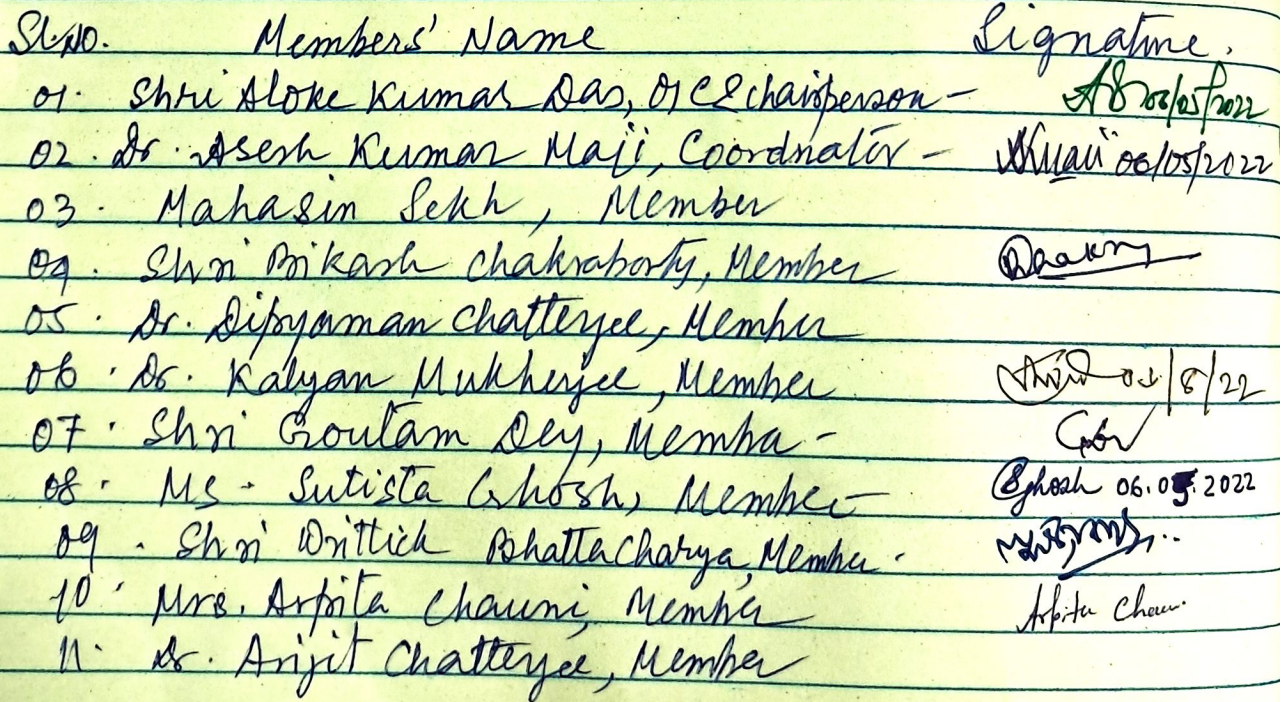 Sl.No. Members' Name Signature.
01. Shri Aloke Kumar Das, OIC & chairperson - 06/05/2022
02. Dr. Asesh Kumar Maji, Coordnator - AKMaji 06/05/2022
03. Mahasin Sekh, Member
04. Shri Bikash Chakraborty, Member
05. Dr. Dipyaman Chatterjee, Member
06. Dr. Kalyan Mukherjee, Member
07. Shri Goutam Dey, Member -
08. Ms. Sutista Ghosh, Member - SGhosh 06.05.2022
09. Shri Writtick Bhattacharya, Member.
10. Mrs. Arpita Chauni, Member Arpita
11. Dr. Arijit Chatterjee, Member